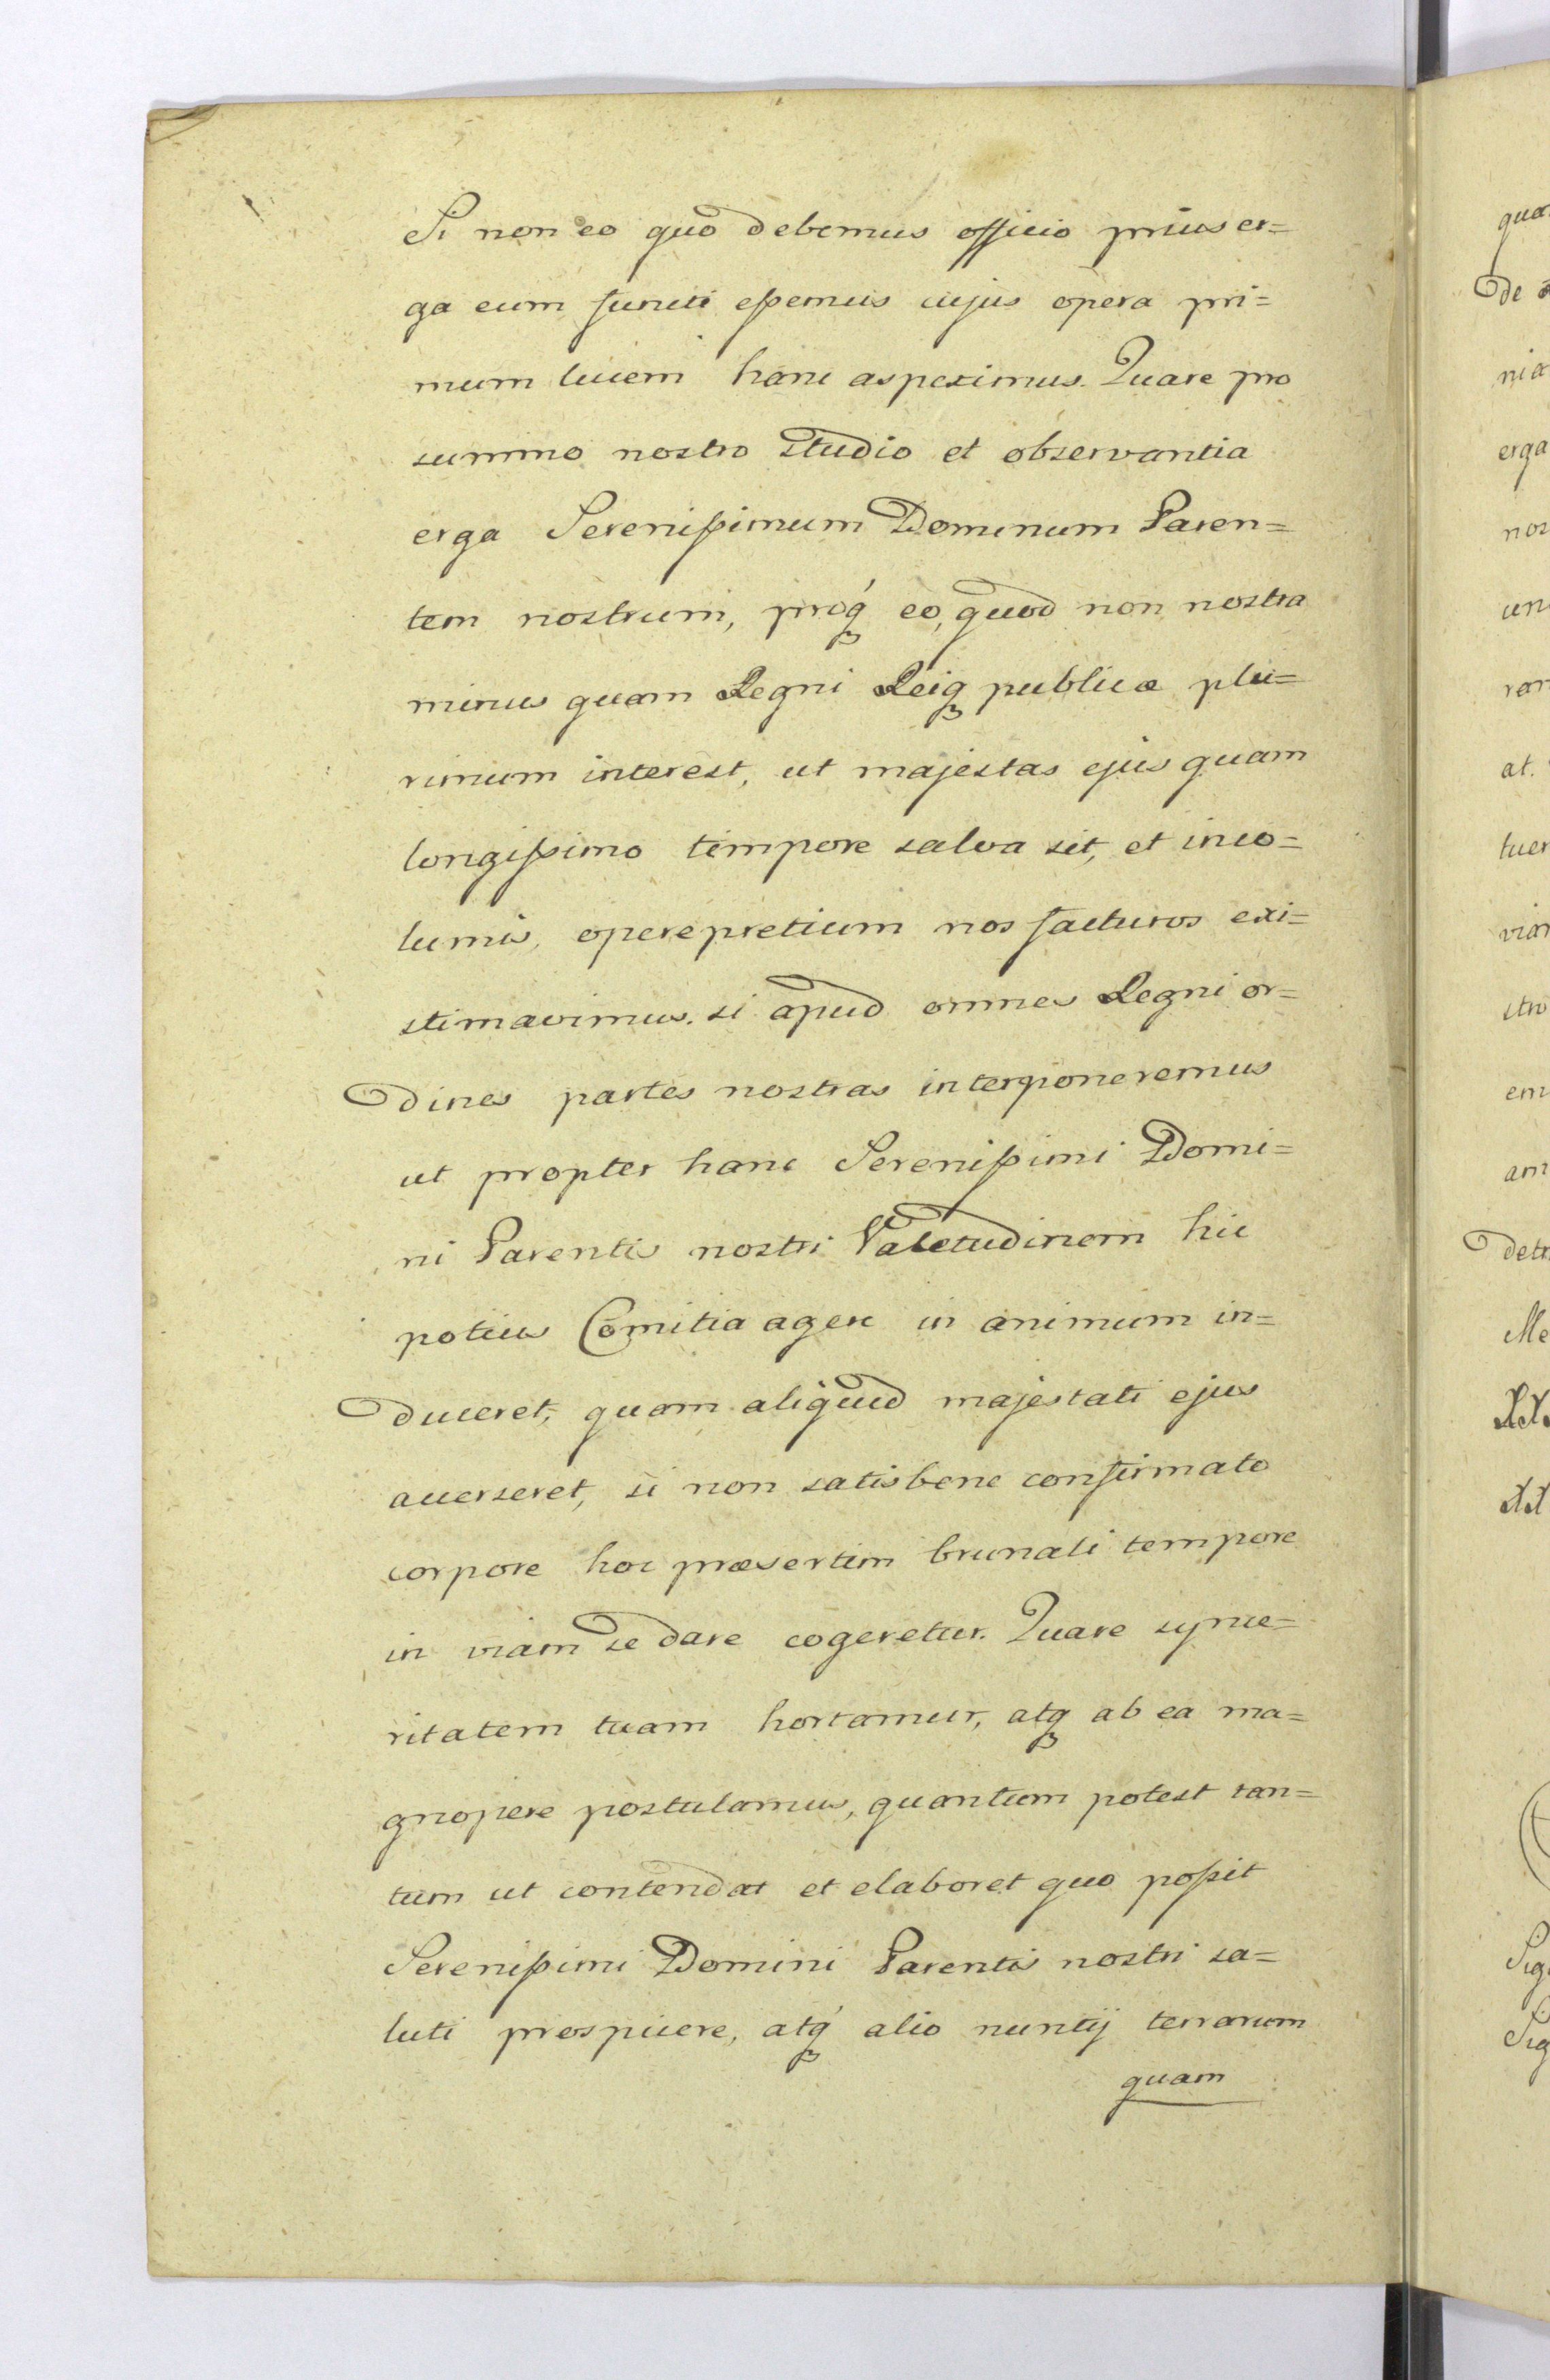 Si non eo quo debemus officio prius er=
ga eum functi eßemus cujus opera pri=
mum lucem hanc aspeximus. Quare pro
summo nostro studio et observantia
erga Serenißimum Dominum Paren=
tem nostrum, proq́ʒ eo, quod non nostra
minus quam Regni Reiqʒ publicæ plu=
rimum interest, ut majestas ejus quam
longißimo tempore salva sit, et inco=
lumis, operepretium nos facturos exi=
stimavimus. si apud omnes Regni or=
dines partes nostras interponeremus
ut propter hanc Serenißimi Domi=
ni Parentis nostri Valetudinem hic
potius Comitia agere in animum in=
duceret, quam aliquid majestati ejus
accerseret, si non satis bene confirmato
corpore hoc præsertim brumali tempore
in viam se dare cogeretur. Quare synce=
ritatem tuam hortamur, atqʒ ab ea ma=
gnopere postulamus, quantum potest tan=
tum ut contendat et elaboret quo poßit
Serenißimi Domini Parentis nostri sa=
luti prospicere, atq́ʒ alio nuntij terrarum
quam
qua
de
nia
erga
nos
un
ran
at.
tuer
vian
stro
em
am
detr
Me
Sig
Sig